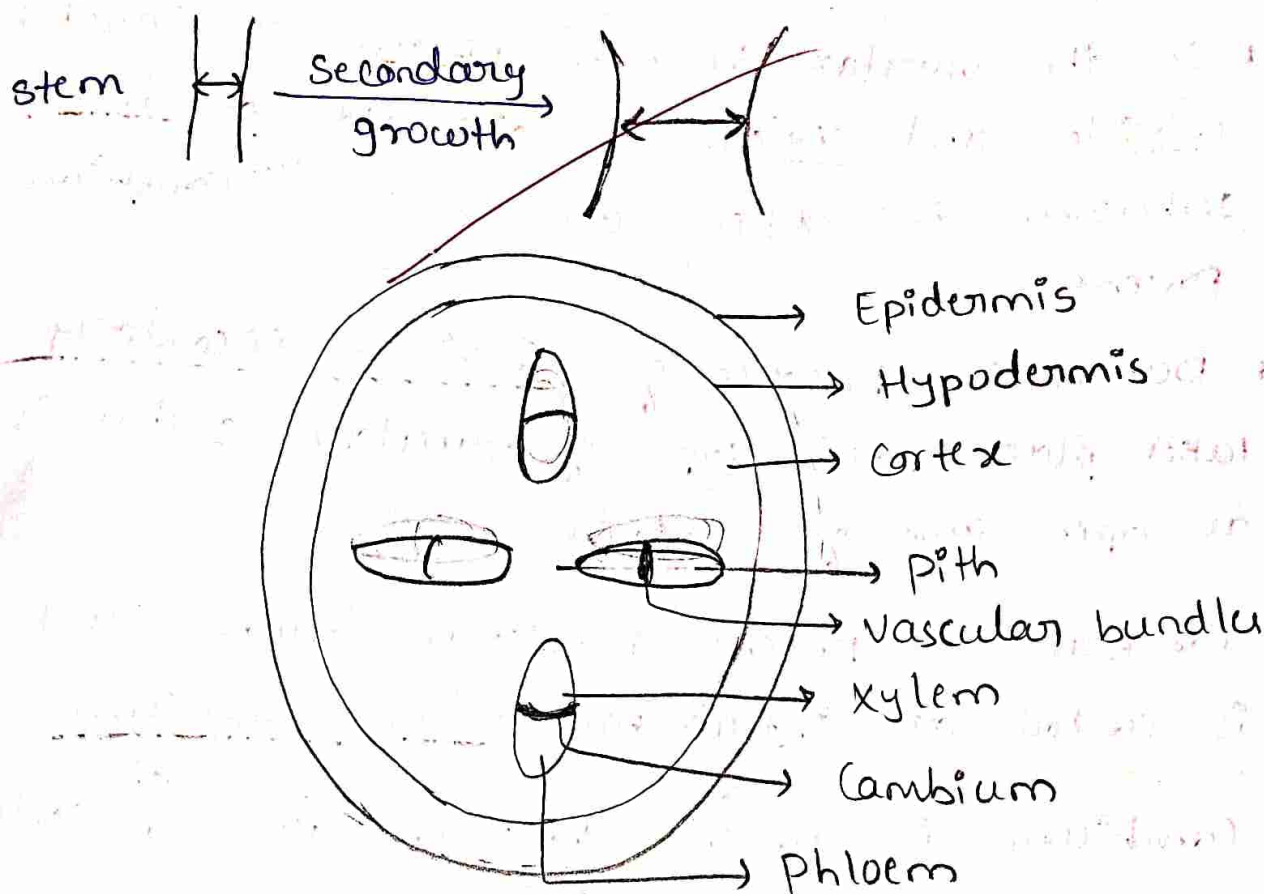 stem
secondary
growth
Epidermis
Hypodermis
Cortex
Pith
Vascular bundlu
Xylem
Cambium
Phloem